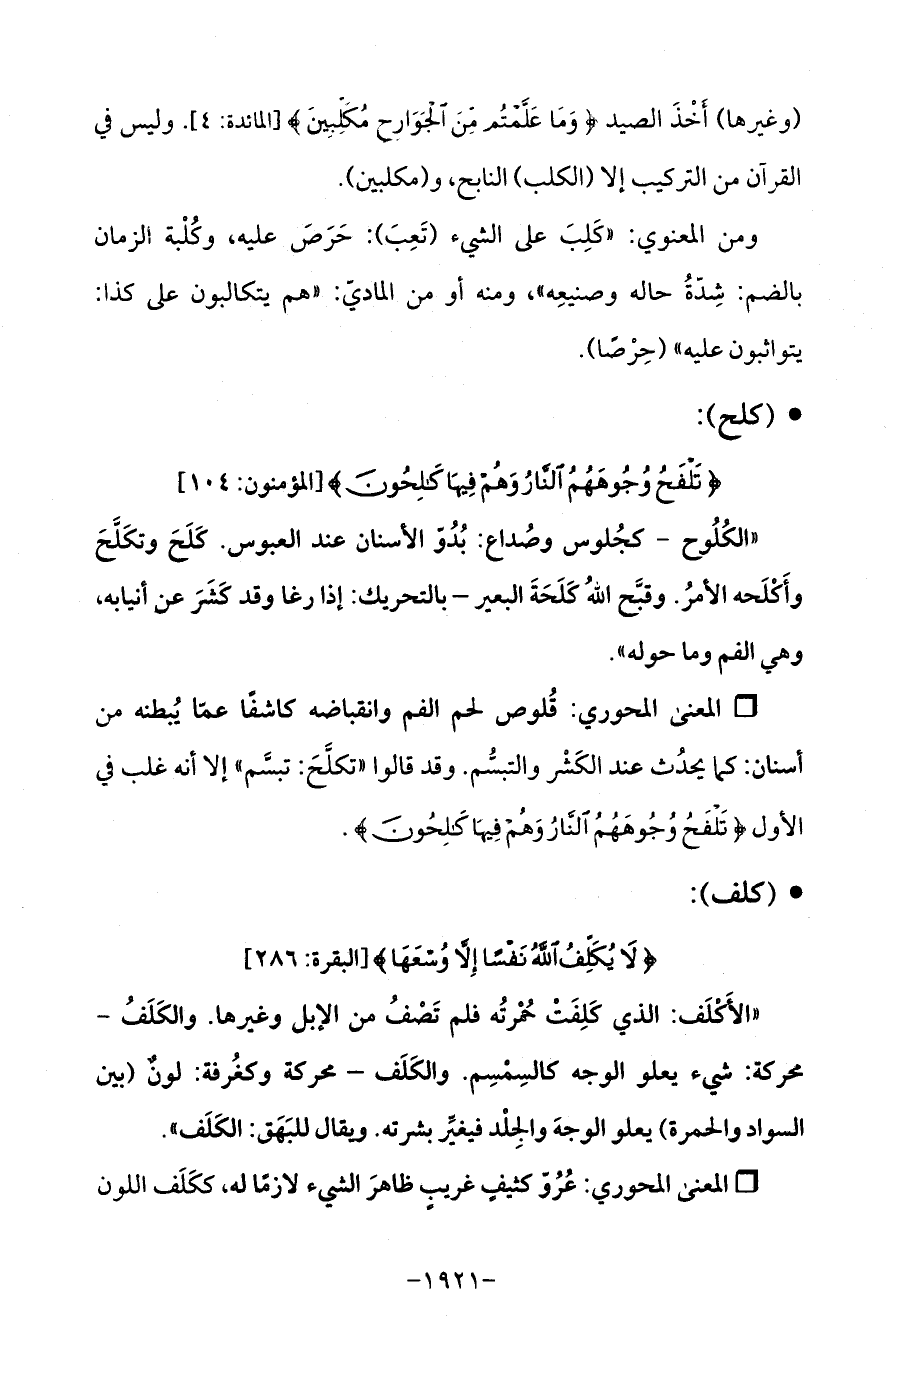 (وغيرها) أَخْذَ الصيد ﴿ وَمَا عَلَّمْتُم مِّنَ ٱلْجَوَارِحِ مُكَلِّبِينَ ﴾ [المائدة: ٤]. وليس في
القرآن من التركيب إلا (الكلب) النابح، و(مكلبين).
ومن المعنوي: «كَلِبَ على الشيء (تَعِبَ): حَرَصَ عليه، وكُلْبة الزمان
بالضم: شِدّةُ حاله وصنيعِه»، ومنه أو من الماديّ: «هم يتكالبون على كذا:
يتواثبون عليه» (حِرْصًا).
• (كلح):
﴿ تَلْفَحُ وُجُوهَهُمُ ٱلنَّارُ وَهُمْ فِيهَا كَـٰلِحُونَ ﴾ [المؤمنون: ١٠٤]
«الكُلُوح - كجُلوس وصُداع: بُدُوّ الأسنان عند العبوس. كَلَحَ وتكَلَّحَ
وأَكْلَحه الأمرُ. وقبَّح اللهُ كَلَحَةَ البعير – بالتحريك: إذا رغا وقد كَشَرَ عن أنيابه،
وهي الفم وما حوله».
❒ المعنى المحوري: قُلوص لحم الفم وانقباضه كاشفًا عمّا يُبطنه من
أسنان: كما يحدُث عند الكَشْر والتبسُّم. وقد قالوا «تكلَّحَ: تبسَّم» إلا أنه غلب في
الأول ﴿ تَلْفَحُ وُجُوهَهُمُ ٱلنَّارُ وَهُمْ فِيهَا كَـٰلِحُونَ ﴾.
• (كلف):
﴿ لَا يُكَلِّفُ ٱللَّهُ نَفْسًا إِلَّا وُسْعَهَا ﴾ [البقرة: ٢٨٦]
«الأَكْلَف: الذي كَلِفَتْ حُمْرتُه فلم تَصْفُ من الإبل وغيرها. والكَلَفُ -
محركة: شيء يعلو الوجه كالسِمْسِم. والكَلَف – محركة وكغُرفة: لونٌ (بين
السواد والحمرة) يعلو الوجهَ والجِلْد فيغيِّر بشرته. ويقال للبَهَق: الكَلَف».
❒ المعنى المحوري: عُرُوّ كثيفٍ غريبٍ ظاهرَ الشيء لازمًا له، ككَلَف اللون
-١٩٢١-